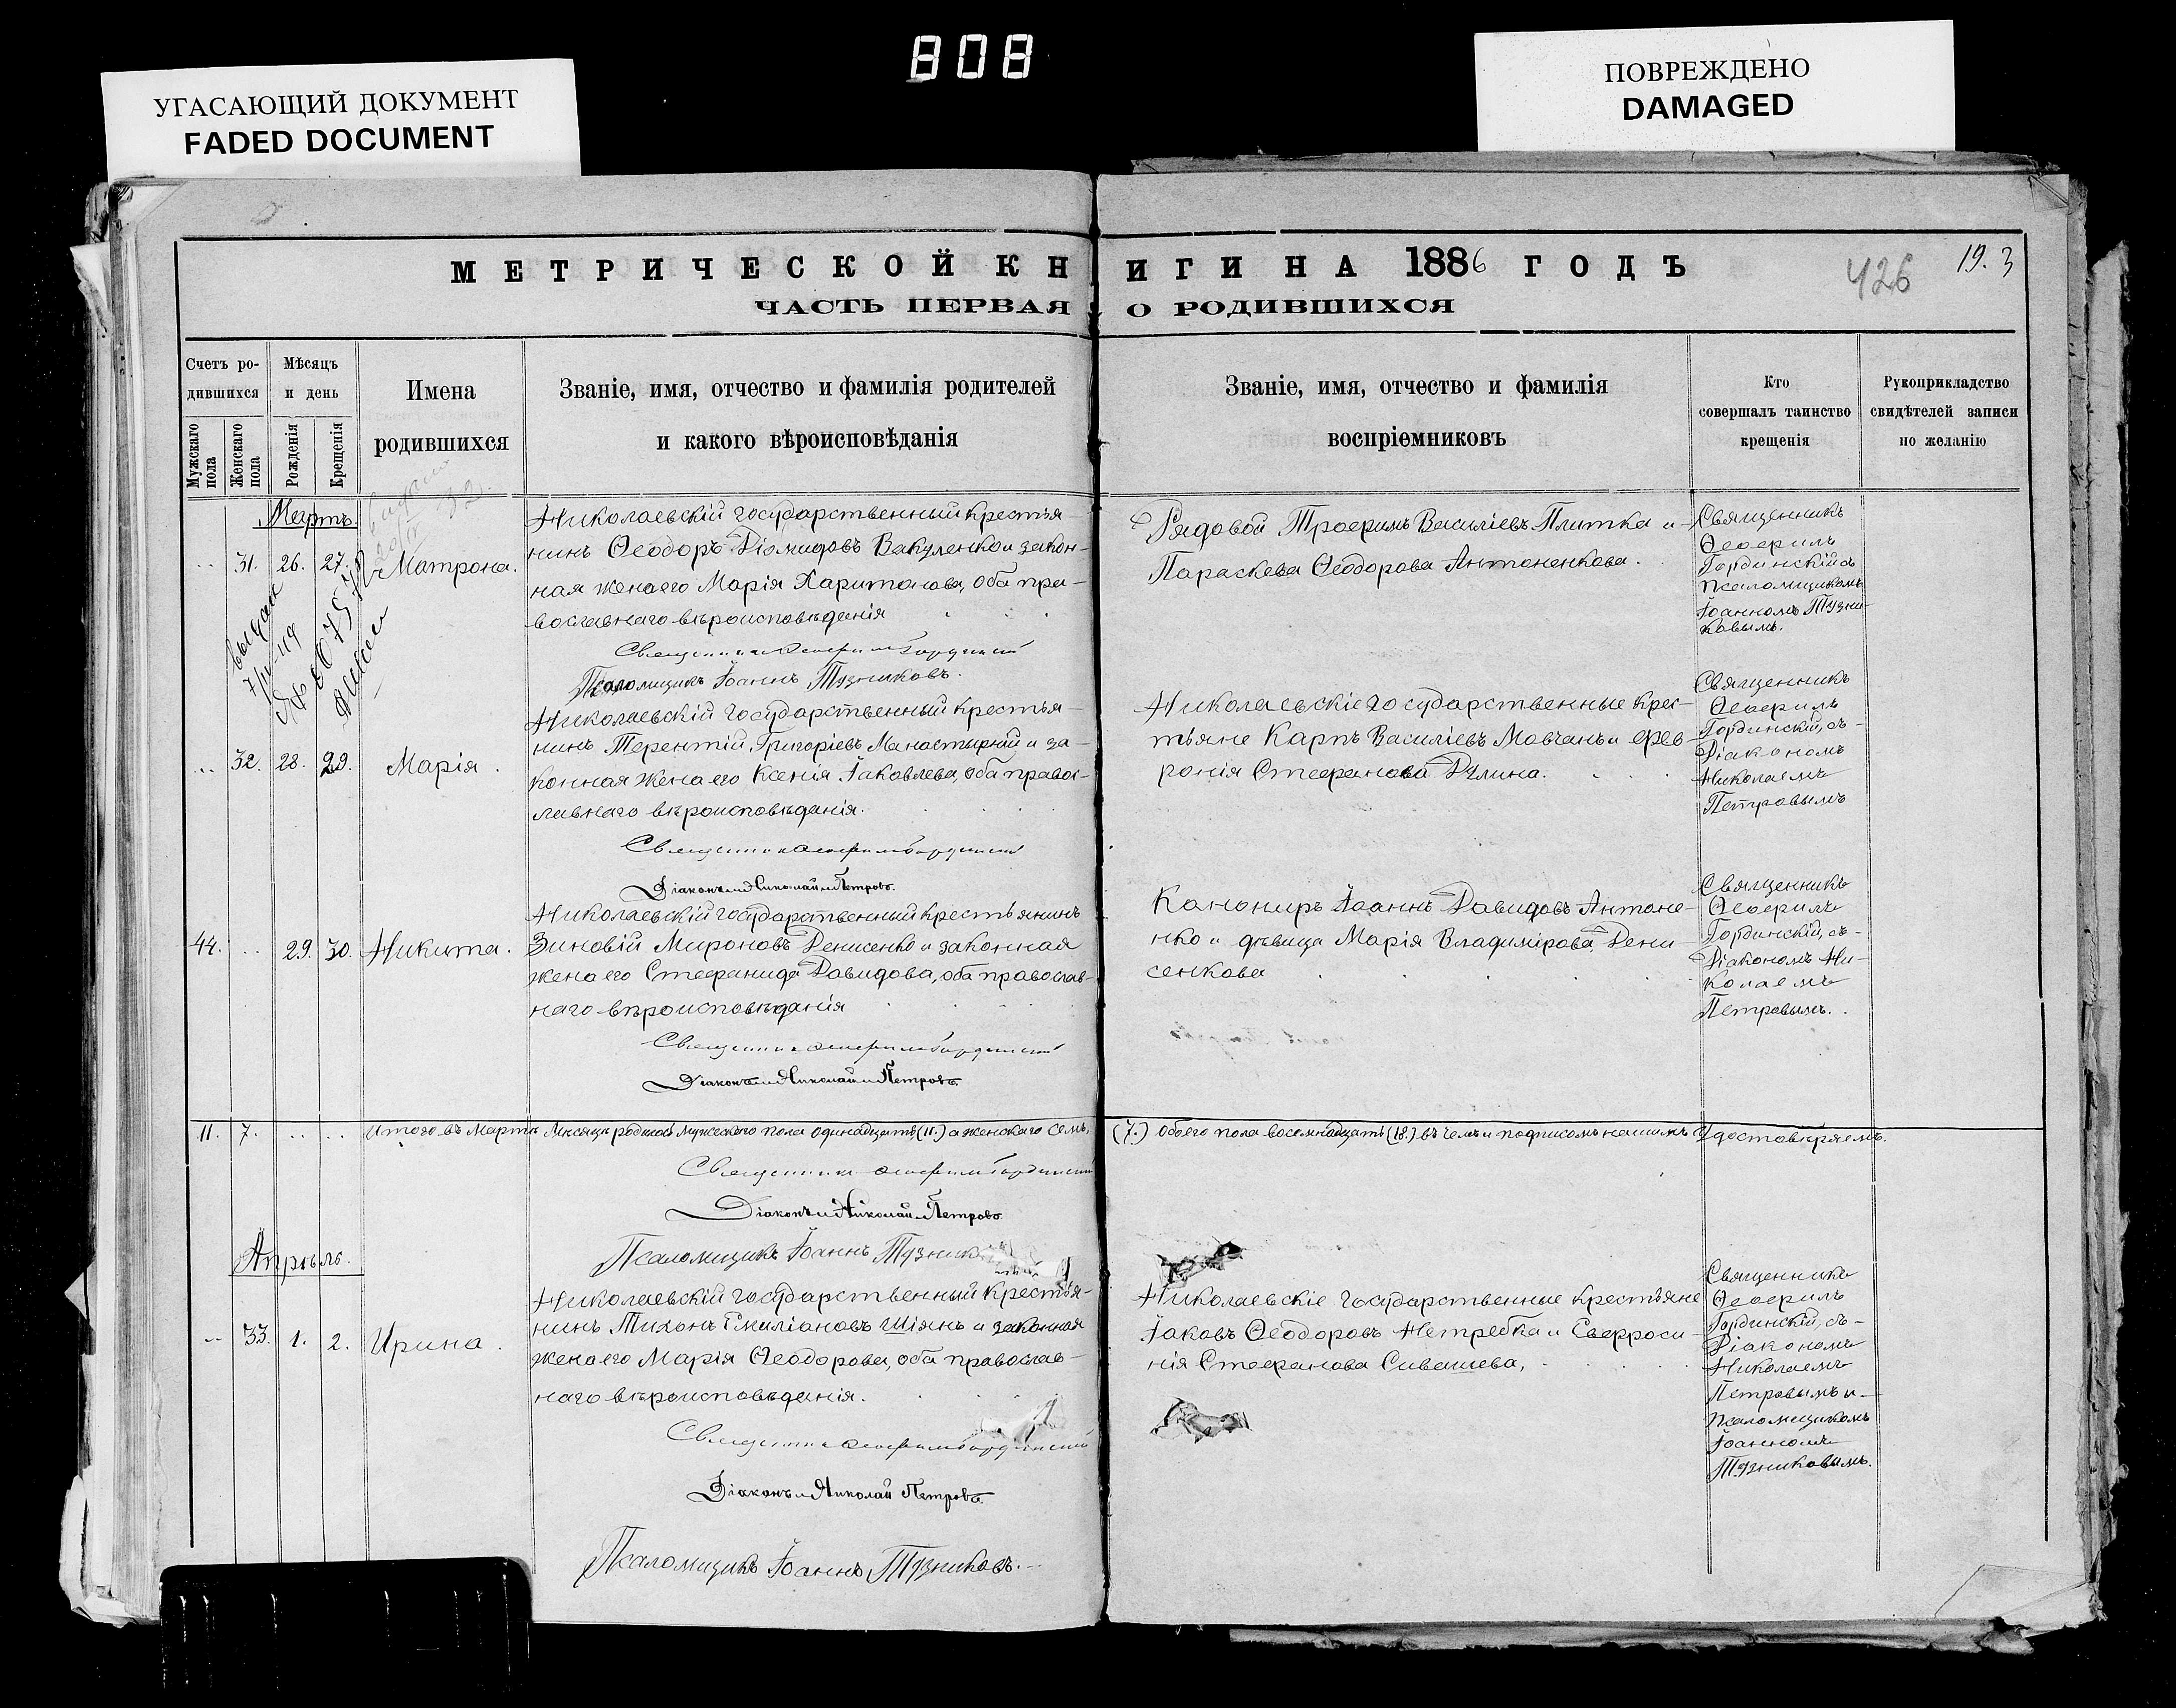 808
УГАСАЮЩИЙ ДОКУМЕНТ
FADED DOCUMENT
ПОВРЕЖДЕНО
DAMAGED
МЕТРИЧЕСКОЙ КНИГИ НА 1886 ГОДЪ
426
19.3
ЧАСТЬ ПЕРВАЯ О РОДИВШИХСЯ
Счетъ ро-
дившихся
Мужскаго пола
Женскаго пола
Мѣсяцъ
и день
Рожденія
Крещенія
Имена
родившихся
Званіе, имя, отчество и фамилія родителей
и какого вѣроисповѣданія
Званіе, имя, отчество и фамилія
воспріемниковъ
Кто
совершалъ таинство
крещенія
Рукоприкладство
свидѣтелей записи
по желанію
Мартъ
31. 26. 27. Матрона.
Николаевскій государственный крестья-
нинъ Ѳеодоръ Діомидовъ Вакуленко и закон-
ная жена его Марія Харитонова, оба пра-
вославнаго вѣроисповѣданія
Псаломщикъ Іоаннъ Тузниковъ.
Рядовой Трофимъ Василіевъ Плитка и
Параскева Ѳеодорова Антоненкова.
Священникъ
Ѳеофилъ
Гординскій съ
псаломщикомъ
Іоанномъ Тузни-
ковымъ.
32. 28. 29. Марія.
Николаевскій государственный крестья-
нинъ Терентій Григоріевъ Манастырній и за-
конная жена его Ксенія Іаковлева, оба правос-
лавнаго вѣроисповѣданія.
Діаконъ Николай Петровъ.
Николаевскіе государственные крес-
тьяне Карпъ Василіевъ Мовчанъ и Фев-
ронія Стефанова Дулина.
Священникъ
Ѳеофилъ
Гординскій, съ-
Діакономъ
Николаемъ
Петровымъ
44. 29. 30. Никита.
Николаевскій государственный крестьянинъ
Зиновій Мироновъ Денисенко и законная
жена его Стефанида Давидова, оба православ-
наго вѣроисповѣданія
Діаконъ Николай Петровъ.
Канониръ Іоаннъ Давидовъ Антоне-
нко и дѣвица Марія Владимірова Дени-
сенкова
Священникъ
Ѳеофилъ
Гординскій, съ-
Діакономъ Ни-
колаемъ
Петровымъ.
11. 7. Итого въ Мартѣ Мѣсяцѣ родилось мужескаго пола одинадцать (11.) а женскаго семь, (7.) обоего пола восемнадцать (18.) въ чемъ и подписомъ нашимъ удостовѣряемъ.
Діаконъ Николай Петровъ.
Псаломщикъ Іоаннъ
Апрѣль.
33. 1. 2. Ирина.
Николаевскій государственный крестья-
нинъ Тихонъ Емиліановъ Шіянъ и законная
жена его Марія Ѳеодорова, оба православ-
наго вѣроисповѣданія.
Діаконъ Николай Петровъ.
Псаломщикъ Іоаннъ Тузниковъ.
Николаевскіе государственные крестьяне
Іаковъ Ѳеодоровъ Нетребка и Евфроси-
нія Стефанова Сивашева,
Священникъ
Ѳеофилъ
Гординскій, съ-
Діакономъ
Николаемъ
Петровымъ и
псаломщикомъ
Іоанномъ
Тузниковымъ.